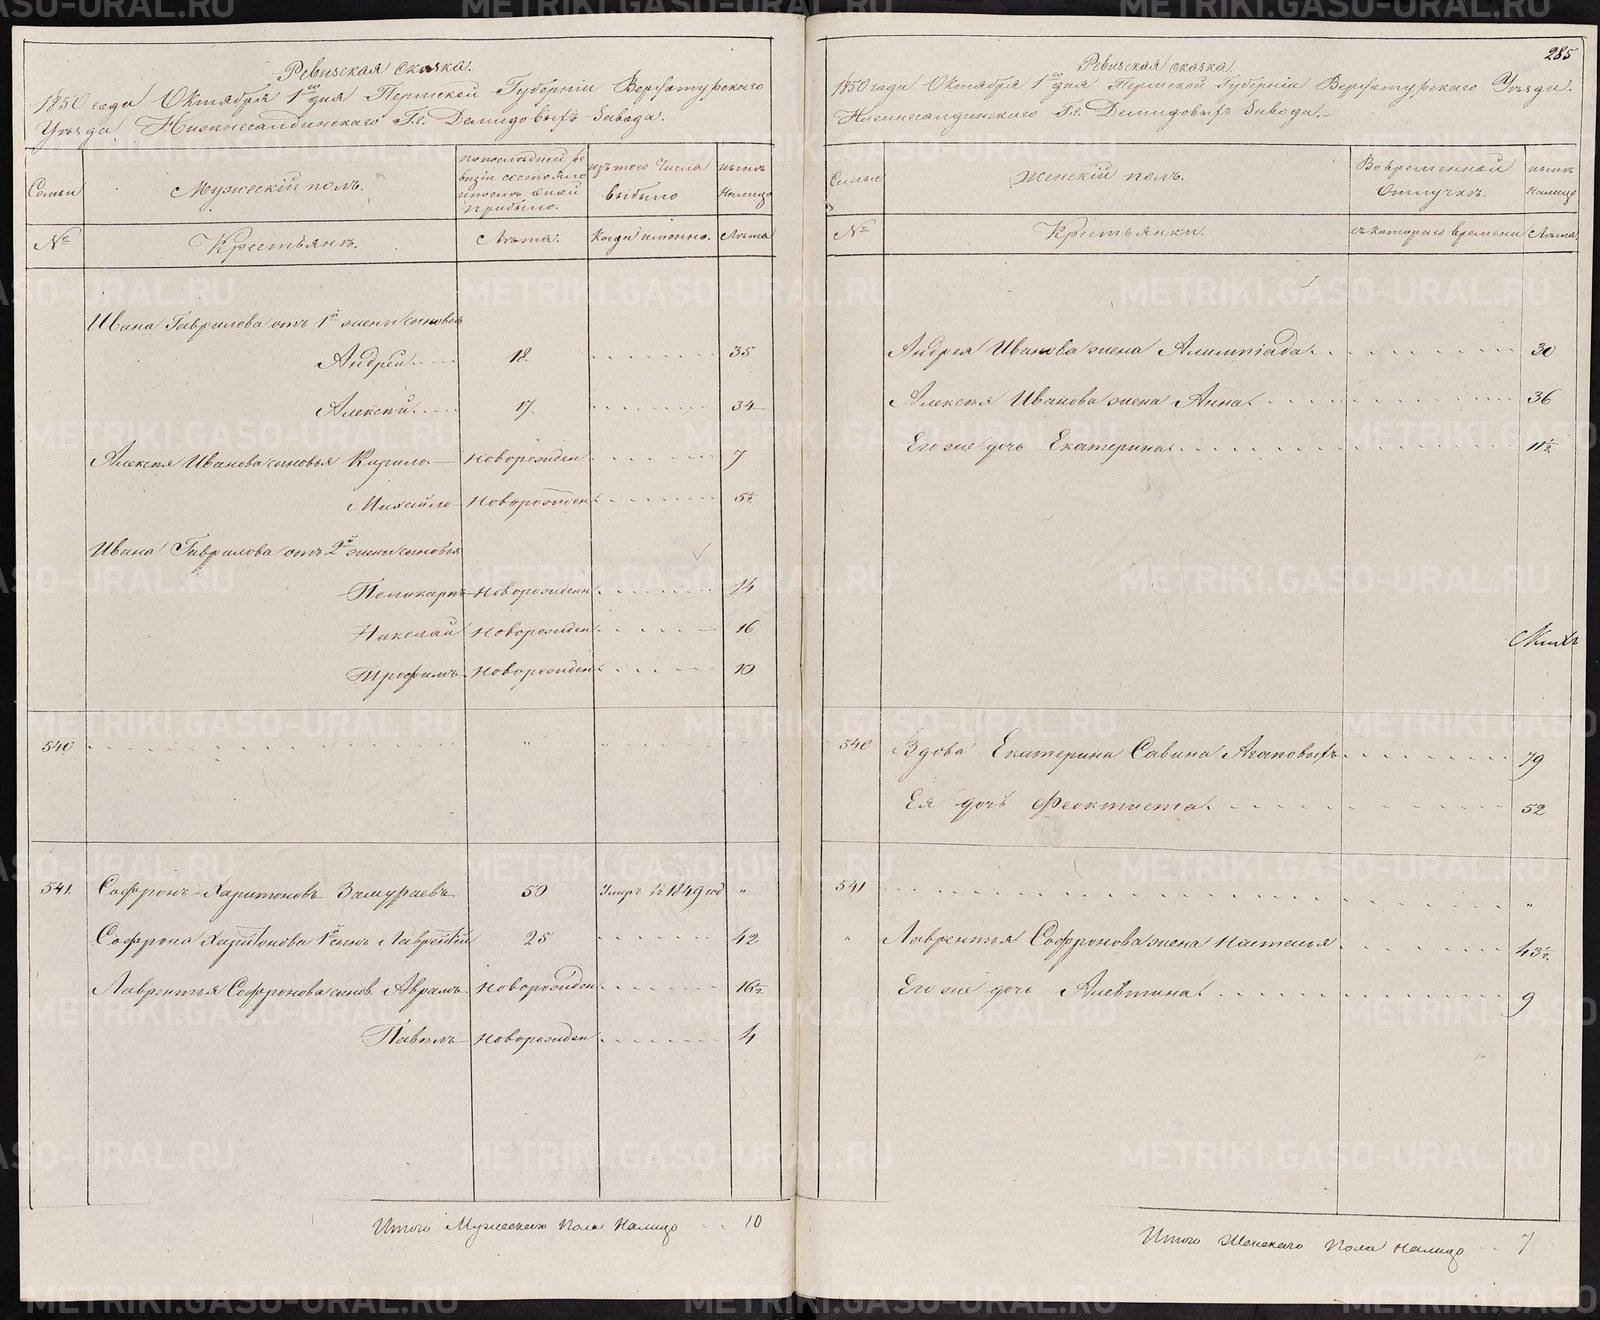 Ревизская сказка.
1850 года Октября 1го дня Пермской Губернии Верхотурскаго
Уѣзда. Нижнесалдинскаго Г.г. Демидовыхъ Завода.
Семьи
Мужескій полъ.
по последней ре
визіи состояло
и после оной
прибыло.
изъ того числа
выбыло
нынѣ
Налицо
№
Крестьянъ.
Лѣта.
Когда именно.
Лѣта
Ивана Гаврилова отъ 1й жены сыновья
Андрей 18. 35
Алексѣй 17. 34
Алексѣя Иванова сыновья Кирило Новорожден 7
Михайло Новорожден 5½
Ивана Гаврилова отъ 2й жены сыновья
Поликарпъ Новорожден 14
Николай Новорожден 16
Трофимъ Новорожден 10
540 " " "
541 Софронъ Харитоновъ Замураевъ 50 Умеръ въ 1849 год "
Софрона Харитонова 1й сынъ Лаврентій 25 42
Лаврентья Софронова сынов. Аврамъ Новорожден 16½
Павелъ Новорожден 4
Итого Мужескаго Пола Налицо 10
285
Ревизская сказка.
1850 года Октября 1го дня Пермской Губерніи Верхотурскаго Уѣзда.
Нижнесалдинскаго Г.г. Демидовыхъ Завода.
Семьи
Женскій полъ.
Во временной
Отлучкѣ.
нынѣ
Налицо
№
Крестьянки.
съ котораго времени
Лѣта
Андрея Иванова жена Алимпіада 30
Алексѣя Иванова жена Анна 36
Его же дочь Екатерина 11½
540 Вдова Екатерина Савина Агаповыхъ 79
Ея дочь Феоктиста 52
541 "
" Лаврентья Софронова жена Настасья 43½
Его же дочь Алевтина 9
Итого Женскаго Пола Налицо 7
METRIKI.GASO-URAL.RU